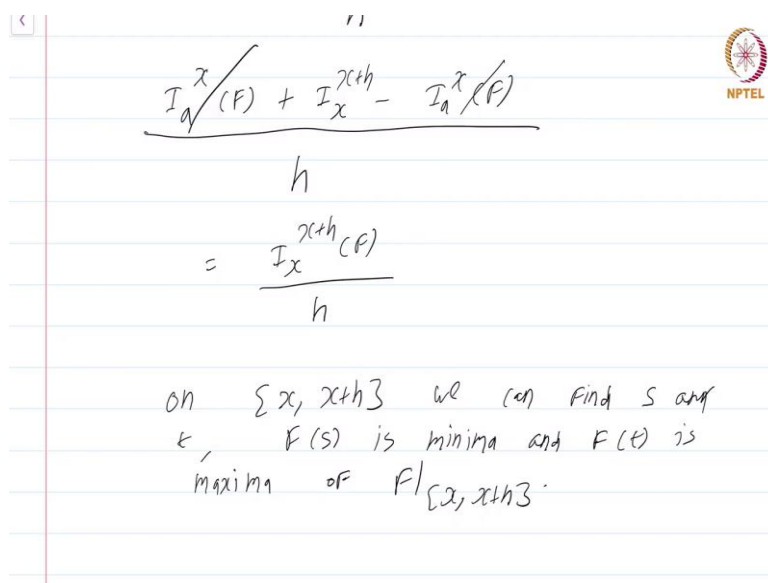 NPTEL
I_a^x(F) + I_x^{x+h} - I_a^x(F)
h
= I_x^{x+h}(F)
h
on [x, x+h] we can find s and
t, F(s) is minima and F(t) is
maxima of F|_{[x, x+h]}.